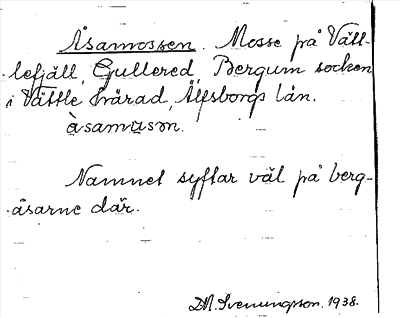 Åsamossen. Mosse på Vätt-
lefjäll, Gullered, Bergum socken
i Vättle härad, Älfsborgs län.
àsamåsm.
Namnet syftar väl på berg-
åsarne där.
D.M. Svenungsson. 1938.